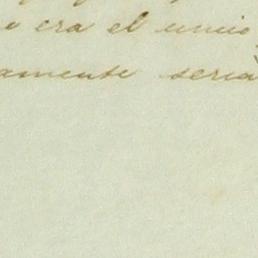 o era el unico
amente seria